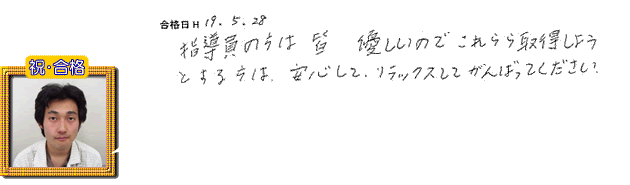 合格日 H 19.5.28
指導員の方は 皆 優しいので これらら取得しよう
とする方は、安心して、リラックスしてがんばってください。
祝・合格